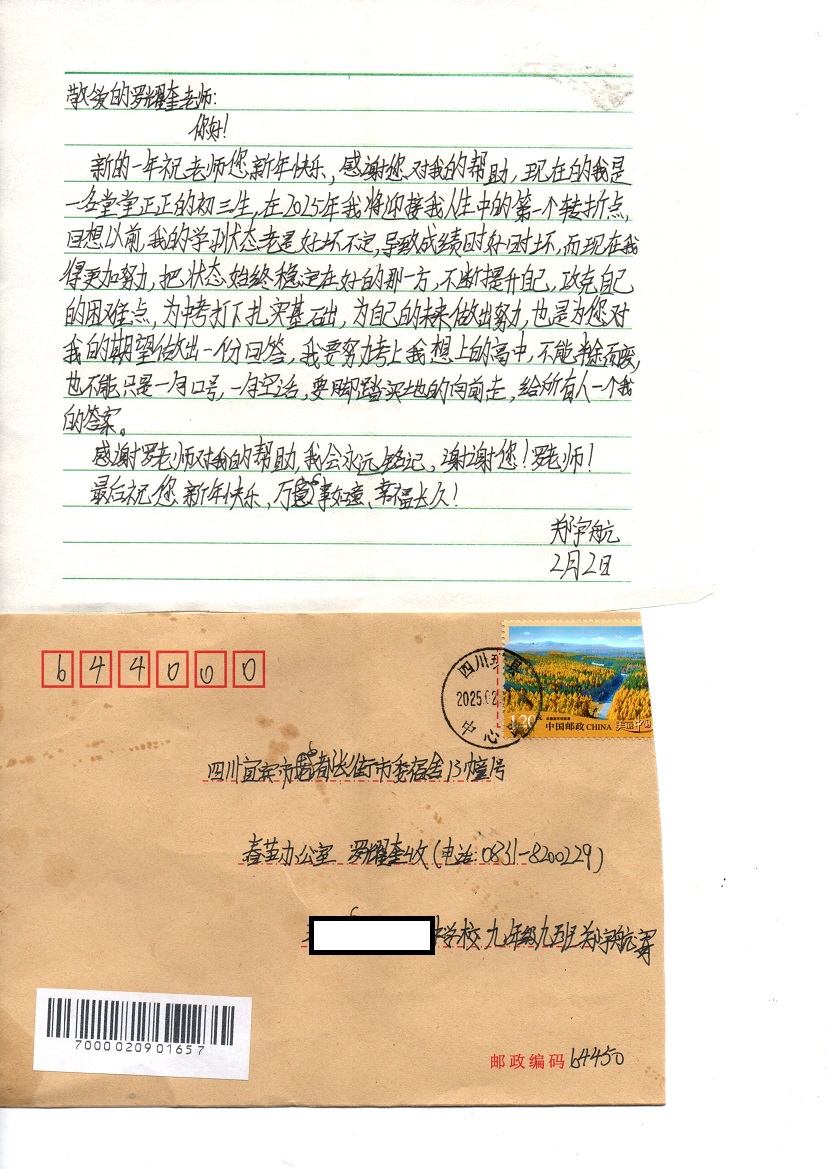 敬爱的罗耀奎老师:
你好!
新的一年祝老师您新年快乐,感谢您对我的帮助,现在的我是
一名堂堂正正的初三生,在2025年我将迎接我人生中的第一个转折点,
回想以前,我的学习状态老是好坏不定,导致成绩时好时坏,而现在我
得更加努力,把状态始终稳定在好的那一方,不断提升自己,攻克自己
的困难点,为中考打下扎实基础,为自己的未来做出努力,也是为您对
我的期望做出一份回答,我要努力考上我想上的高中,不能半途而废,
也不能只是一句口号,一句空话,要脚踏实地的向前走,给所有人一个我
的答案。
感谢罗老师对我的帮助,我会永远铭记,谢谢您!罗老师!
最后祝您新年快乐,万事如意、幸福长久!
郑宇航
2月2日
644000
四川
2025.02
中心
1.20
中国邮政 CHINA
美丽中国
四川宜宾市都长街市委宿舍13幢1号
春蕾办公室 罗耀奎收(电话:0831-8200229)
学校九年级九班郑宇航寄
7000020901657
邮政编码 64450